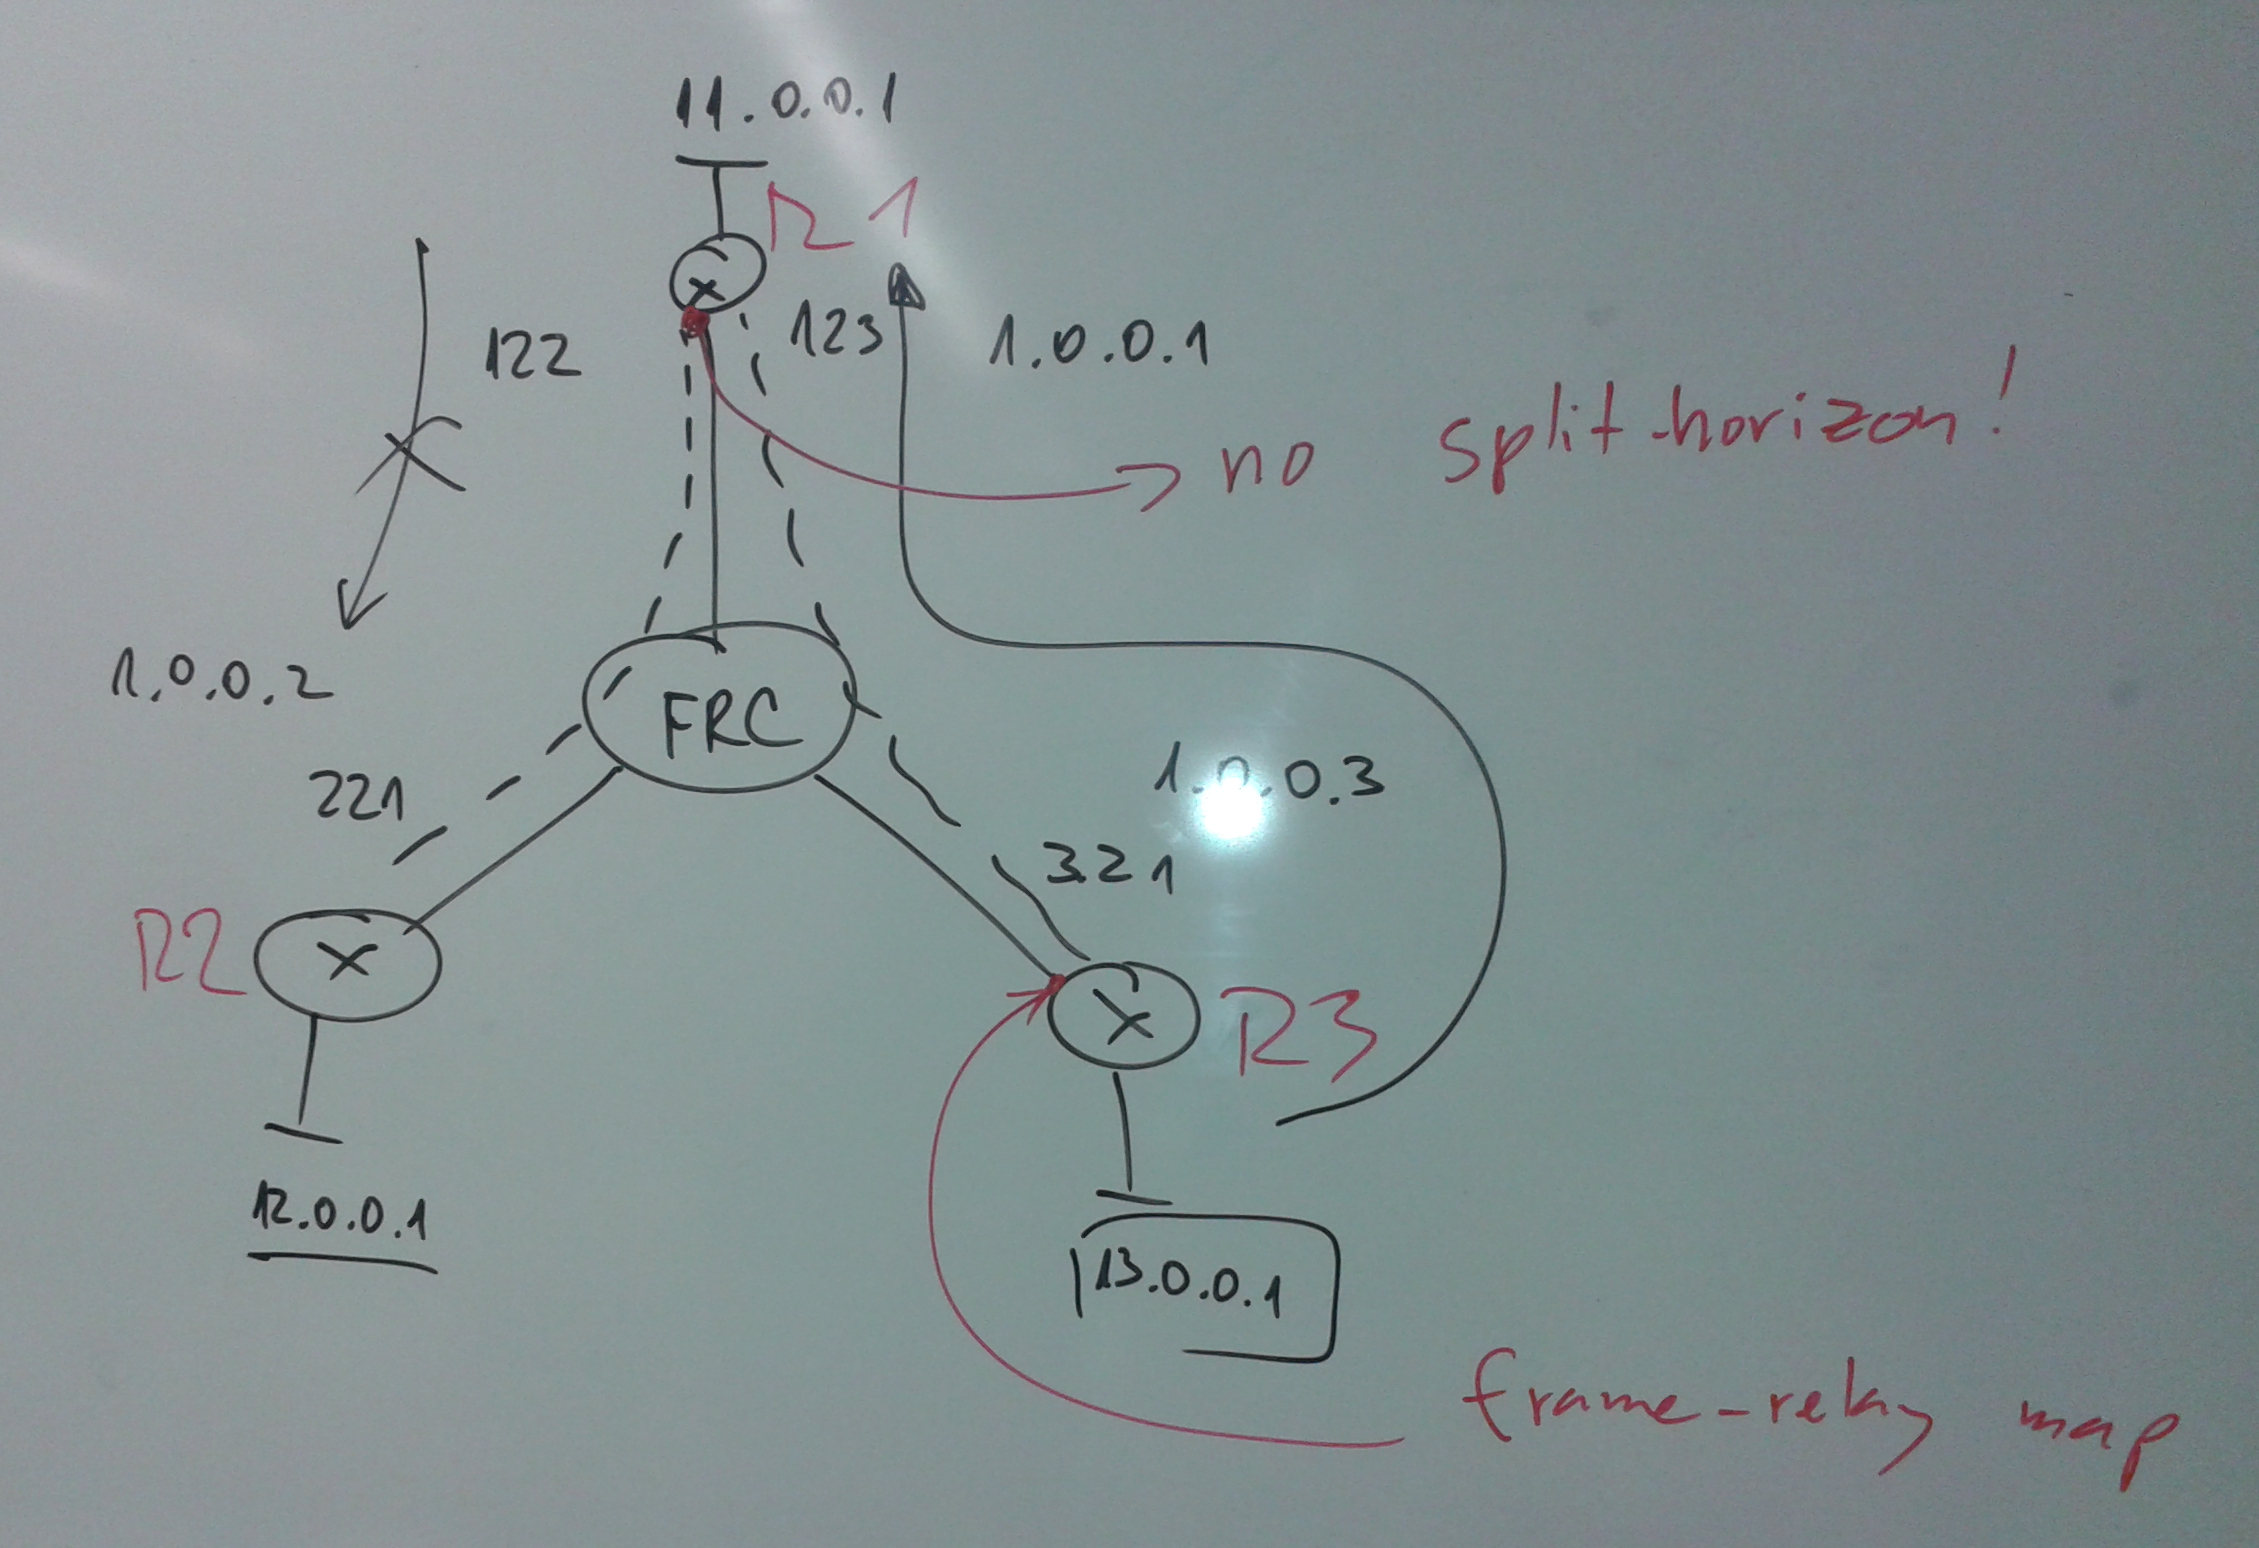 11.0.0.1
R1
122
123
1.0.0.1
no split-horizon!
1.0.0.2
FRC
221
1.0.0.3
321
R2
R3
12.0.0.1
13.0.0.1
frame-relay map